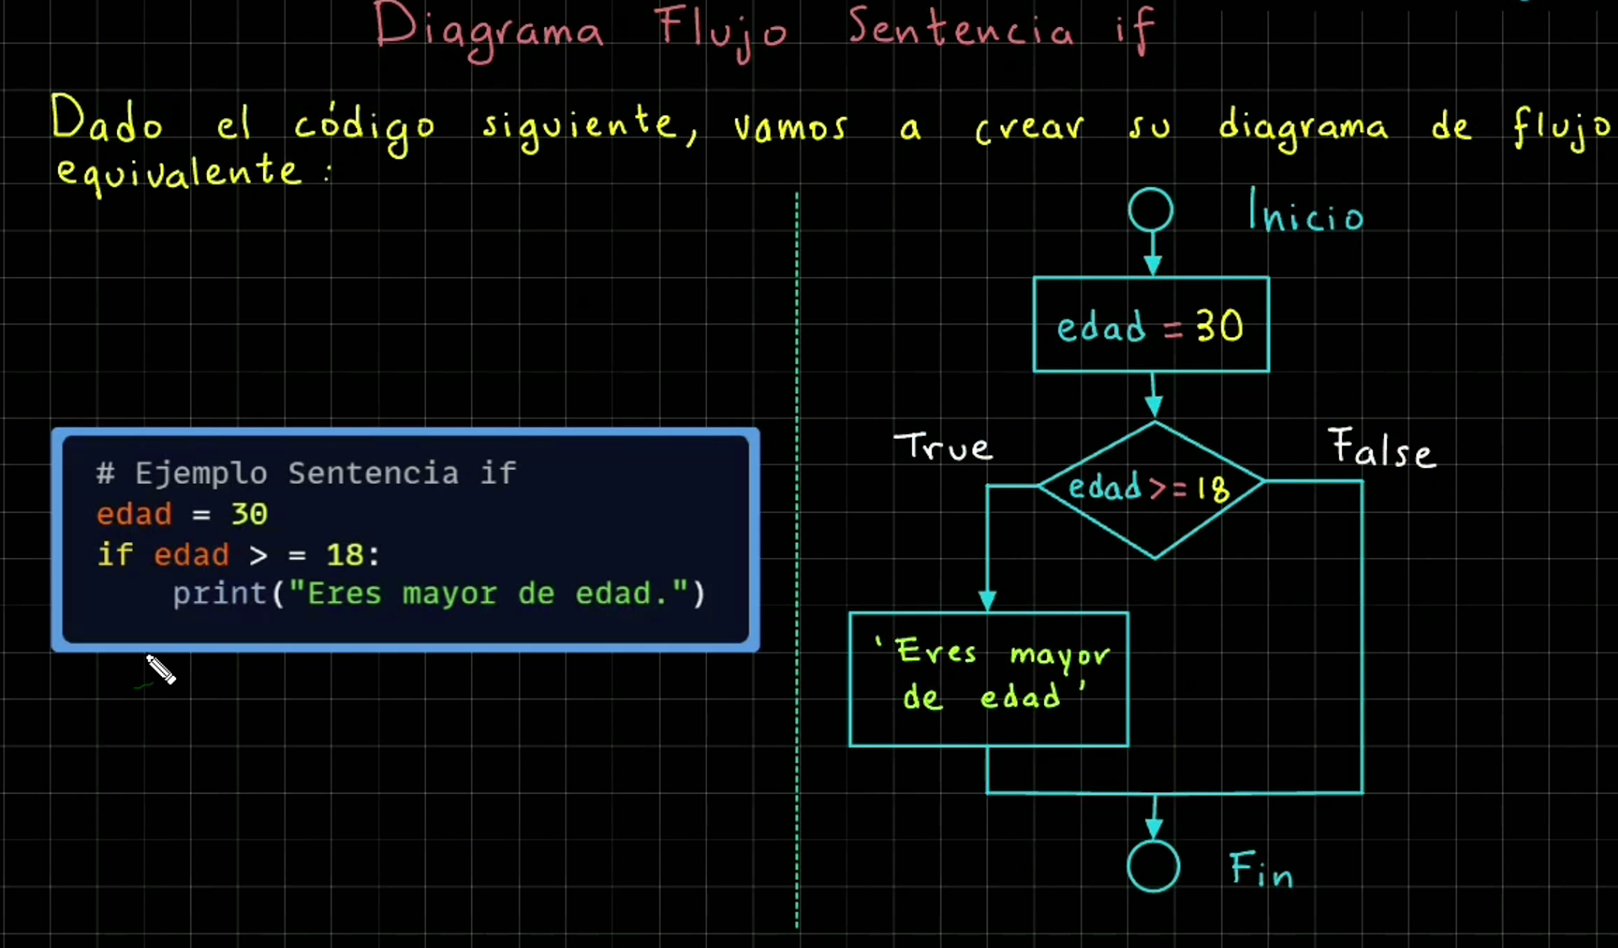 Diagrama Flujo Sentencia if
Dado el código siguiente, vamos a crear su diagrama de flujo
equivalente:
# Ejemplo Sentencia if
edad = 30
if edad > = 18:
    print("Eres mayor de edad.")
Inicio
edad = 30
True
False
edad >= 18
'Eres mayor
de edad'
Fin